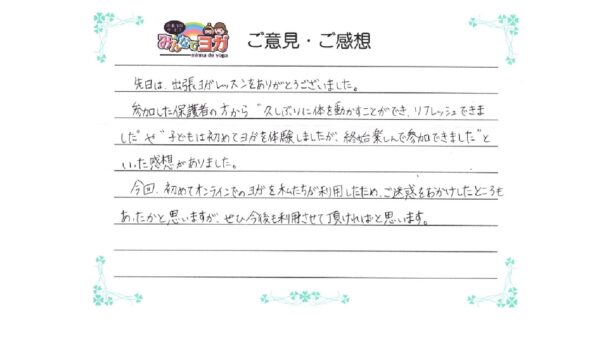 みんなでヨガ
minna de yoga
ご意見・ご感想
先日は、出張ヨガレッスンをありがとうございました。
参加した保護者の方から“久しぶりに体を動かすことができ、リフレッシュできま
した”や“子どもは初めてヨガを体験しましたが、終始楽しんで参加できました”と
いった感想がありました。
今回、初めてオンラインでのヨガを私たちが利用したため、ご迷惑をおかけしたところも
あったかと思いますが、ぜひ今後も利用させて頂ければと思います。